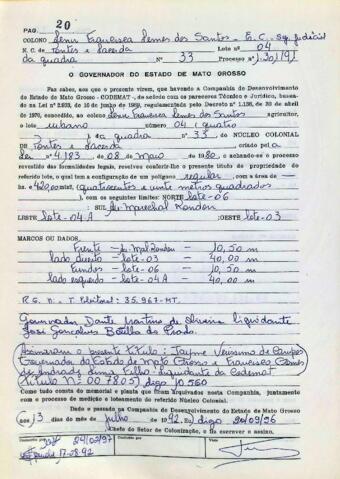 PAG. 20
COLONO Lenir Francisca Lemes dos Santos - E.C. Sep. Judicial
N. C. de Pontes e Lacerda Lote nº 04
da quadra Nº 33 Processo nº 1.301/91
O GOVERNADOR DO ESTADO DE MATO GROSSO
Faz saber, aos que o presente virem, que havendo a Companhia de Desenvolvimento
do Estado de Mato Grosso - CODEMAT -, de acordo com os pareceres Técnico e Jurídico, basea-
da na Lei nº de 16 de junho de regulamentada pelo Decreto nº 1.138, de 30 de abril
de 1970, concedido, ao colono Lenir Francisca Lemes dos Santos agricultor,
o lote urbano número 04 (quatro
) da quadra nº 33 NÚCLEO COLONIAL
de Pontes e Lacerda criado pela
Lei nº 4.183 de 08 de Maio de 1980, e achando-se o processo
revestido das formalidades legais, resolveu conferir-lhe o presente título de propriedade do
referido lote, o qual tem a configuração de um polígono regular com a área de
- hs e 420,00 mts², (quatrocentos e vinte metros quadrados
), com os seguintes limites: NORTE lote-06
SUL Av. Marechal Rondon
LESTE lote-04-A OESTE lote-03
MARCOS OU DADOS
Frente - Av. Mal. Rondon - 10,50 m
lado direito - lote-03 - 40,00 m
Fundos - lote-06 - 10,50 m
lado esquerdo - lote-04-A - 40,00 m
R. G. n. - T. Eleitoral: 35.967-MT.
Governador Dante Martins de Oliveira liquidante
José Gonçalves Botelho do Prado.
Assinaram o presente título: Jayme Verissimo de Campos
Governador do Estado de Mato Grosso e Francisco
de Andrade Lima Filho - Liquidante da Codemat
(título Nº 007805) digo 10.560
Tudo como consta do memorial e planta que ficam arquivados nesta Companhia, juntamente
com o processo de medição e loteamento do referido Núcleo Colonial.
Dado e passado na Companhia de Desenvolvimento do Estado de Mato Grosso
aos 13 dias do mês de julho de 1992. Eu, digo 20/09/96
Chefe do Setor de Colonização, fiz escrever e assino.
24/02/97
17-08-92
Visto